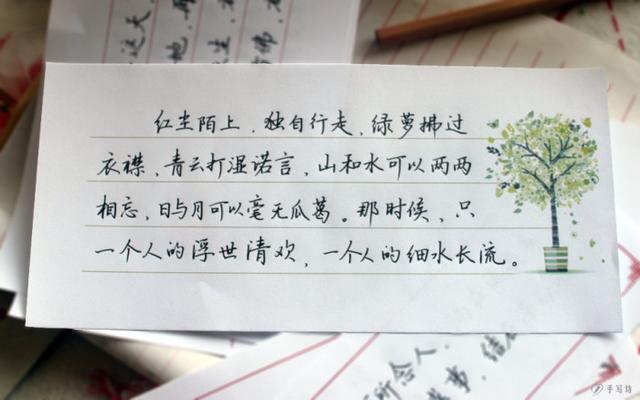 红尘陌上，独自行走，绿萝拂过
衣襟，青云打湿诺言，山和水可以两两
相忘，日与月可以毫无瓜葛。那时候，只
一个人的浮世清欢，一个人的细水长流。
所念人
手写坊